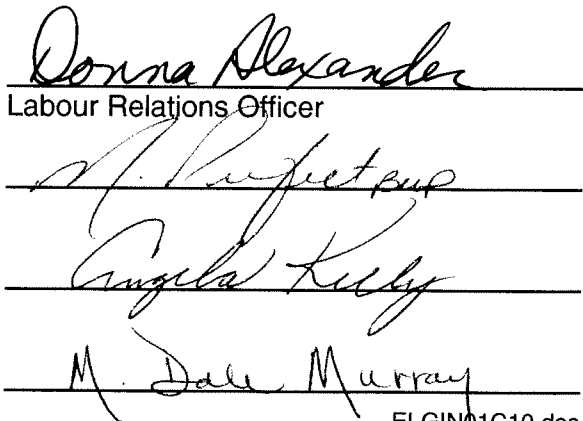 Donna Alexander
Labour Relations Officer
M. Prefect BUP
Angela Kelly
M. Dale Murray
ELGIN01C10.doc